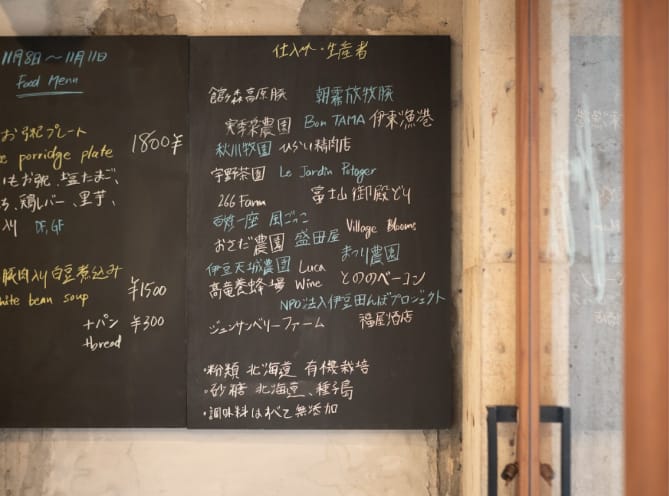 11月8日～11月11日
Food Menu
お粥プレート
porridge plate
1800¥
いもお粥、塩たまご、
ち、鶏レバー、里芋、
入り DF,GF
豚肉入り白豆煮込み
white bean soup
¥1500
+パン ¥300
+bread
仕入れ・生産者
館ヶ森高原豚 朝霧放牧豚
実季菜農園 Bon TAMA 伊東漁港
秋川牧園 ひらい精肉店
宇野茶園 Le Jardin Potager
266 Farm 富士山 御殿どり
百姓一座 風ごっこ
おさだ農園 盛田屋 Village Blooms
伊豆天城農園 Luca まつり農園
高竜養蜂場 Wine とののベーコン
NPO法人伊豆田んぼプロジェクト
ジュンサンベリーファーム 福屋酒店
・粉類 北海道 有機栽培
・砂糖 北海道、種子島
・調味料はすべて無添加